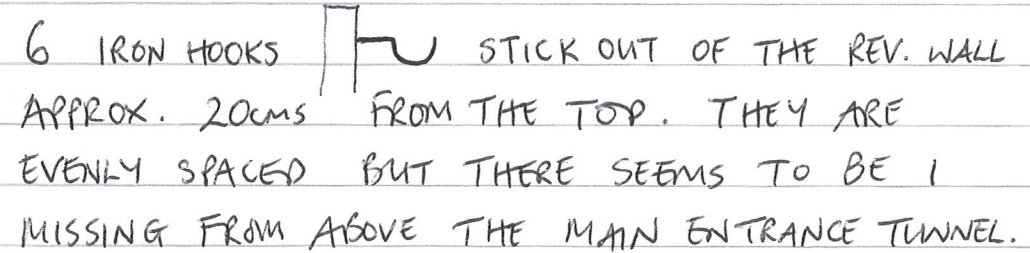 6 IRON HOOKS STICK OUT OF THE REV. WALL
APPROX. 20cms FROM THE TOP. THEY ARE
EVENLY SPACED BUT THERE SEEMS TO BE 1
MISSING FROM ABOVE THE MAIN ENTRANCE TUNNEL.